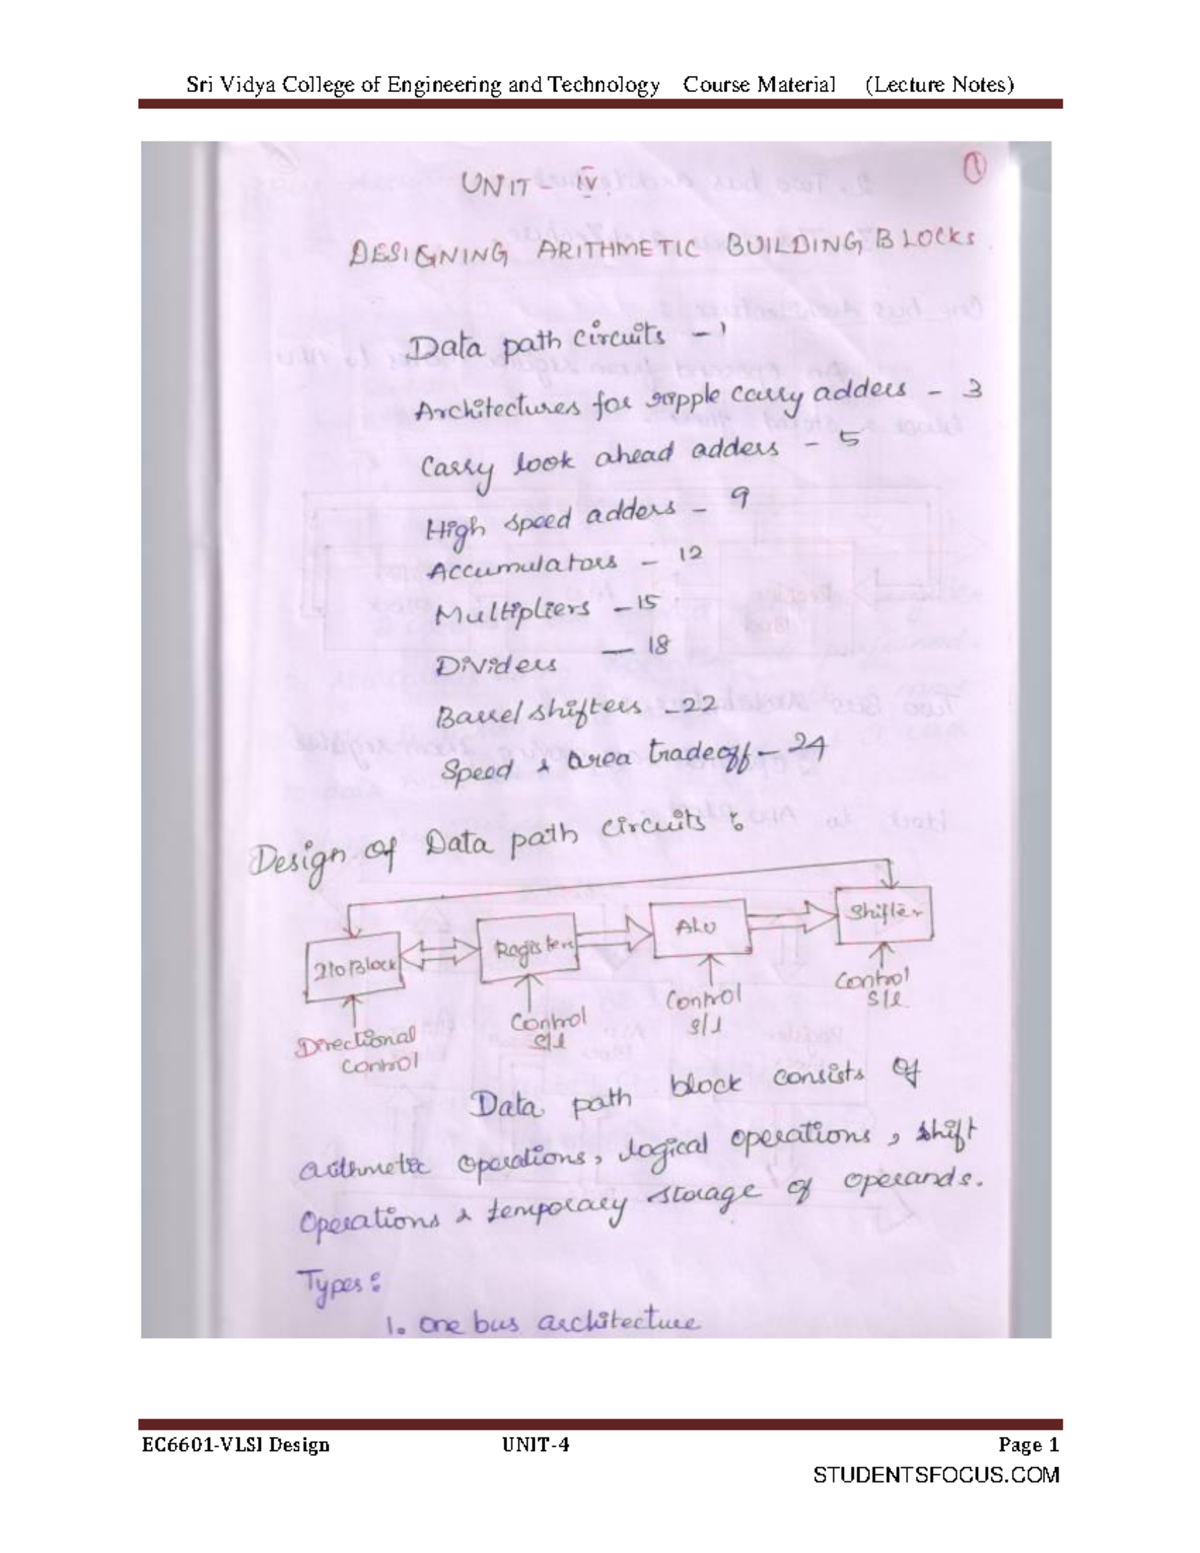 Sri Vidya College of Engineering and Technology Course Material (Lecture Notes)
1
UNIT - IV.
DESIGNING ARITHMETIC BUILDING BLOCKS.
Data path circuits - 1
Architectures for ripple carry adders - 3
Carry look ahead adders - 5
High speed adders - 9
Accumulators - 12
Multipliers - 15
Dividers - 18
Barrel shifters - 22
Speed & area tradeoff - 24
Design of Data path circuits :
I/o Block
Registers
ALU
Shifter
Directional control
Control s/l
Control s/l
Control s/l
Data path block consists of
arithmetic operations, logical operations, shift
operations & temporary storage of operands.
Types :
1. One bus architecture
EC6601-VLSI Design UNIT-4 Page 1
STUDENTSFOCUS.COM